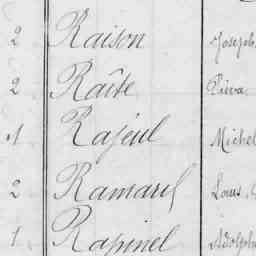 2 Raison Joseph
2 Raîte
1 Rajeul Michel
2 Louis
1 Rapinel Adolphe